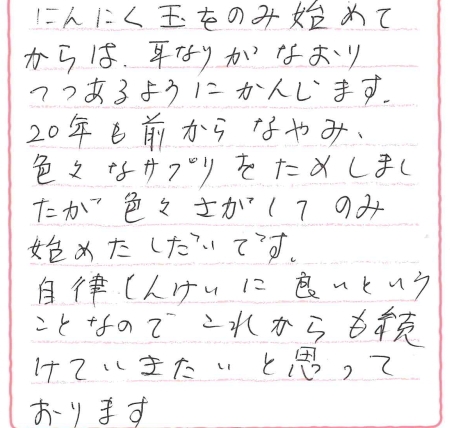 にんにく玉をのみ始めて
からは、耳なりがなおり
つつあるようにかんじます。
20年も前からなやみ、
色々なサプリをためしまし
たが色々さがしてのみ
始めたしだいです。
自律しんけいに良いという
ことなのでこれからも続
けていきたいと思って
おります